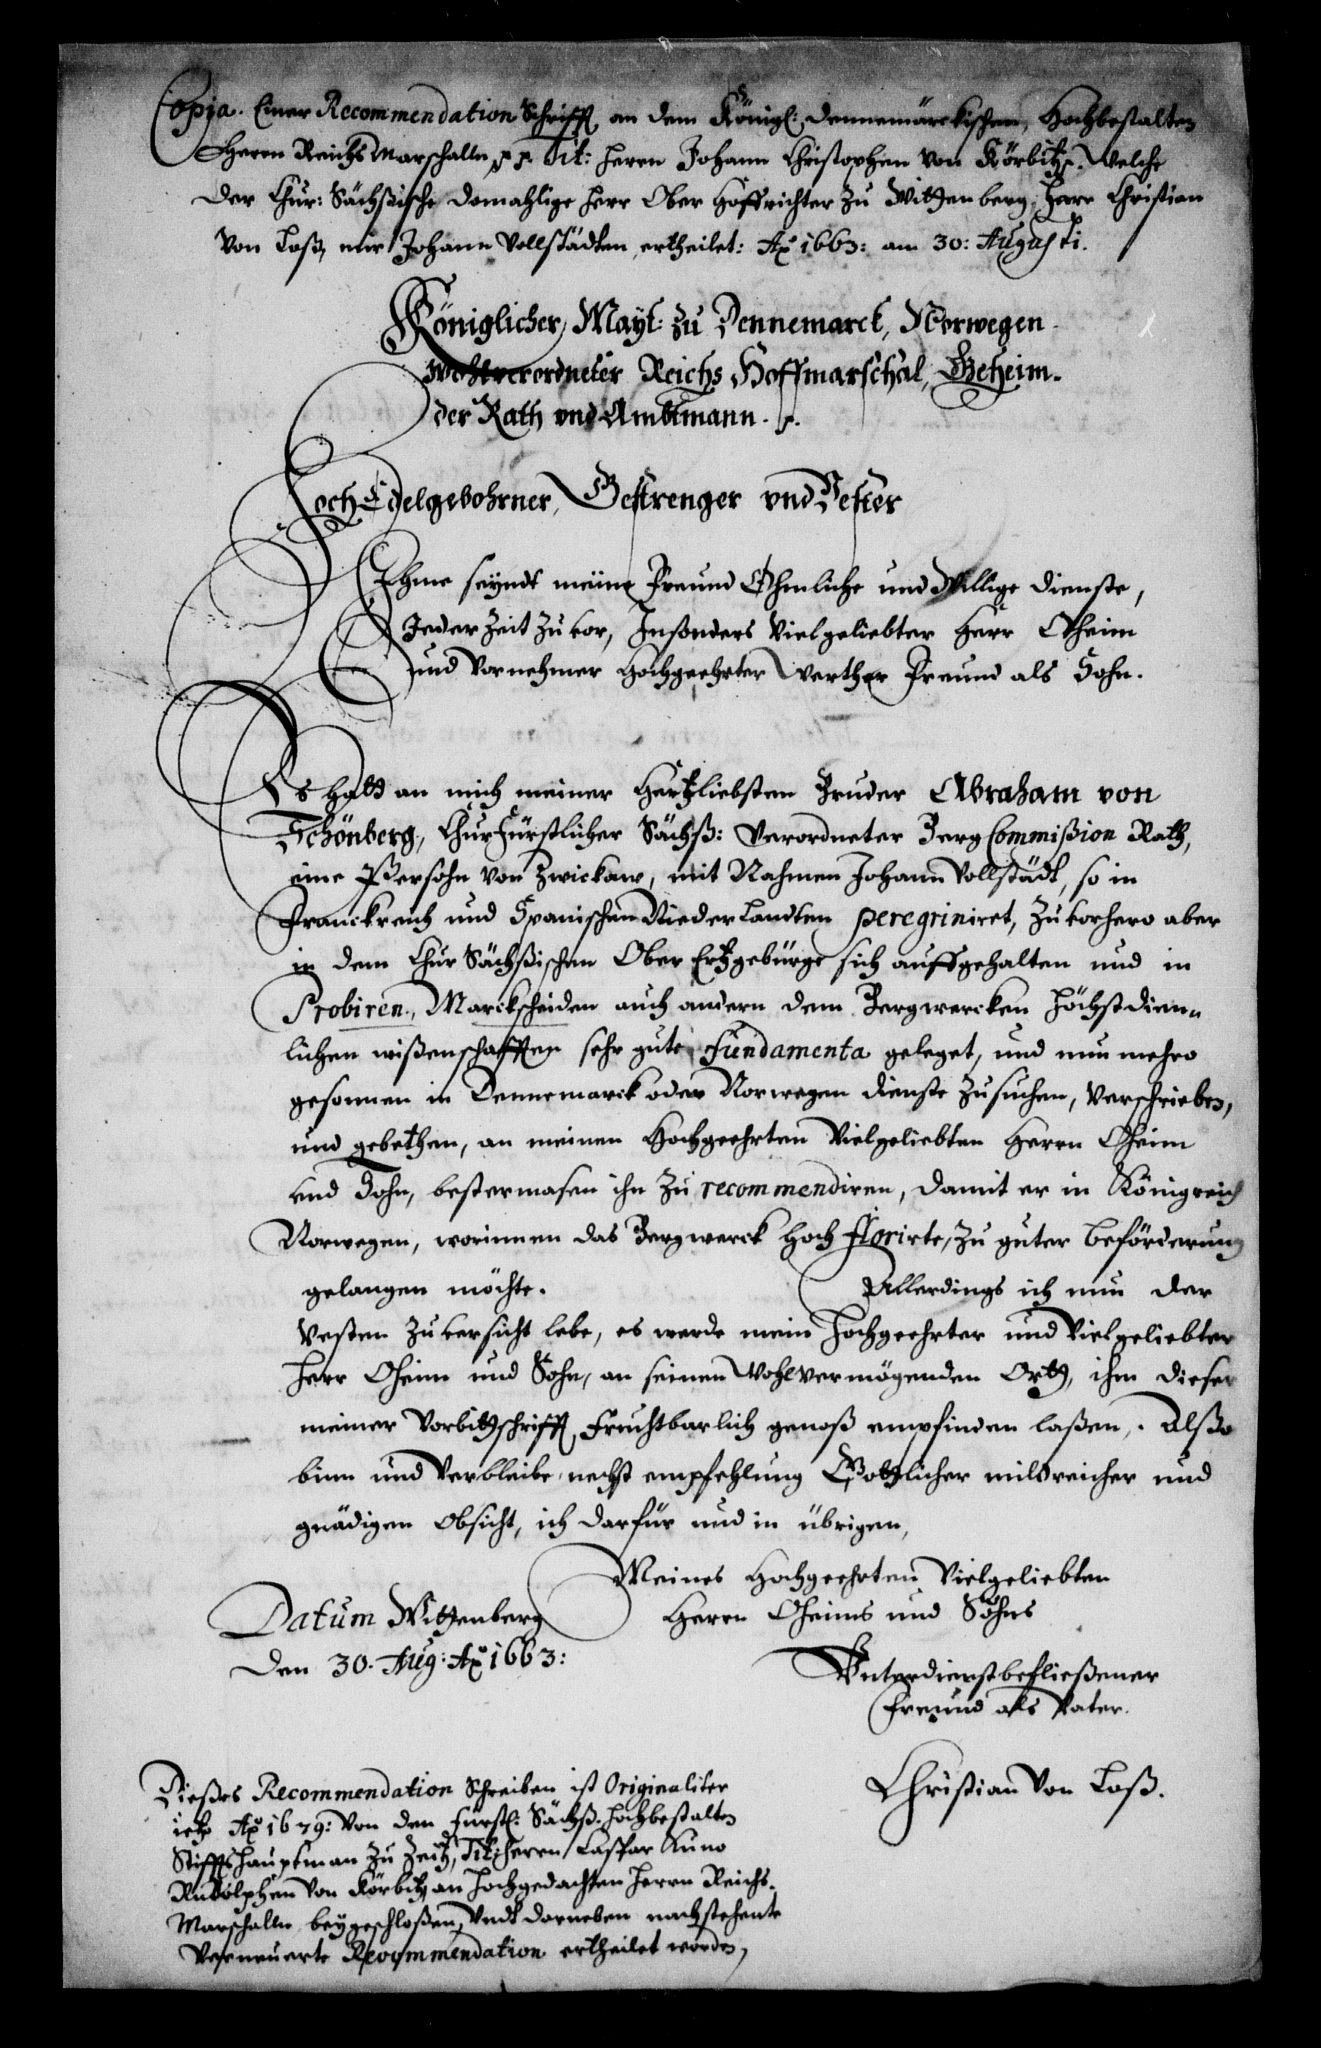 Copja. Einer Recommendation Schrifft an dem Königl: Dennemärckischen, Hochbestalten
Herrn Reichs Marschalln p. p. Tit: Herrn Johann Christophen von Körbitz p. welche
der Chur: Sächßische damahlige Herr Ober Hoffrichter zu Wittenberg, Herr Christian
von Loß, mir Johann Vollstädten, ertheilet: Ao 1663: am 30: Augusti.
Königlicher Mayt: zu Dennemarck, Norwegen
Wohlverordneter Reichs Hoffmarschal, Geheim-
der Rath vnd Ambtmann. p.
HochEdelgebohrner, Gestrenger vnd Vester
Ihme seyndt meine Freund Öhmliche und willige Dienste,
Jederzeit zuvor, Insonders vielgeliebter Herr Oheim
und vornehmer Hochgeehrter werther Freund als Sohn.
Es hatt an mich meiner Hertzliebsten Bruder Abraham von
Schönberg, ChurFürstlicher Sächß: verordneter Berg Commißion Rath,
eine Persohn von Zwickaw, mit Nahmen Johann Vollstädt, so in
Franckreich und Spanischen Niederlandten peregriniret, zuvorhero aber
in dem Chur Sächßischen Ober Ertzgebürge sich auffgehalten und in
Probiren, Marckscheiden auch andern dem Bergwercken höchstdien-
lichen wißenschafften sehr gute fundamenta geleget, und nun mehro
gesonnen in Dennemarck oder Norwegen Dienste zusuchen, verschrieben,
und gebethen, an meinen Hochgeehrten vielgeliebten Herrn Oheim
vnd Sohn, bestermasen ihn zu recommendiren, damit er in Königreich
Norwegen, worinnen das Bergwerck hoch florirte, zu guter beförderung
gelangen möchte. Allerdings ich nun der
Vesten zuversicht lebe, es werde mein Hochgeehrter und Vielgeliebter
Herr Oheim und Sohn, an seinen Wohlvermögenden Orth, ihn dieser
meiner Vorbittschrifft Fruchtbarlich genoß empfinden laßen, Alßo
binn und Verbleibe nechst empfehlung Göttlicher mildreicher und
gnädigen Obsicht, ich darfür und in übrigen,
Meines Hochgeehrten Vielgeliebten
Herrn Oheims und Söhns
Datum Wittenberg
den 30. Aug: Ao 1663:
Vnterdienstbefließener
Freund als Vater.
Christian von Loß.
Dießes Recommendation Schreiben ist Originaliter
ietzo Ao 1679: von den Fürstl: Sächß. Hochbestalten
Stiffts Hauptman zu Zeitz, Tit: Herrn Caspar Kuno
Rudolphen von Körbitz an Hochgedachten Herrn Reichs-
Marschalln beygeschloßen, Undt darneben nachstehente
Verneuerte Recommendation ertheilet worden,